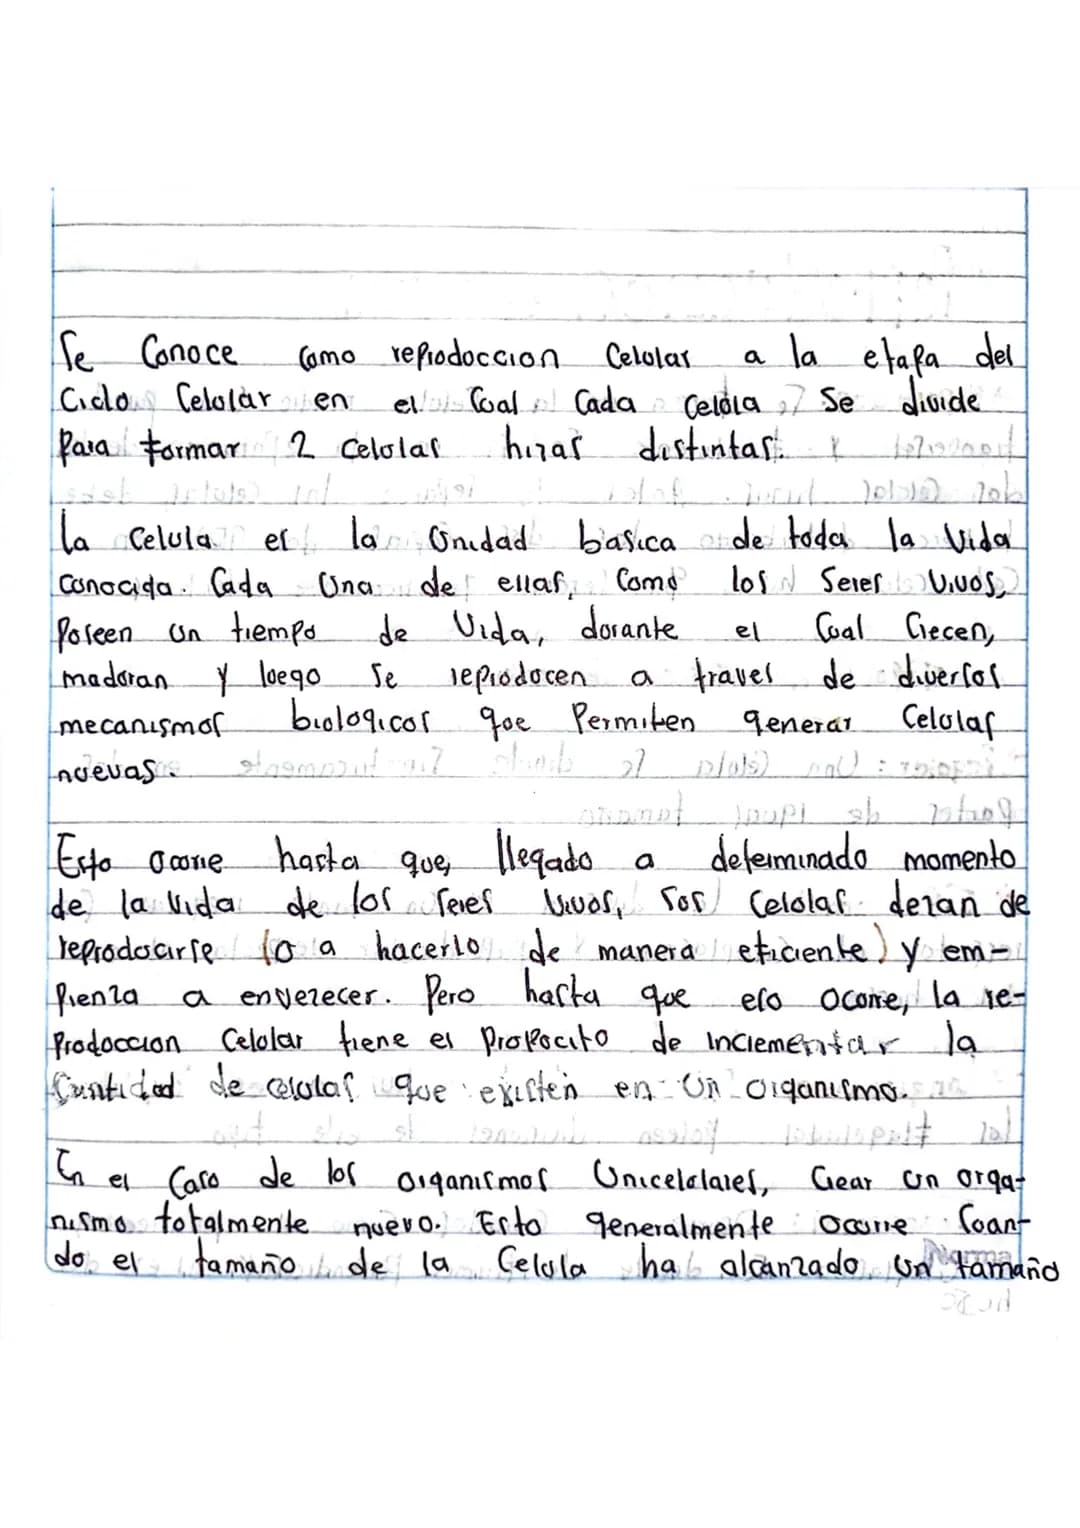 Se Conoce como reproduccion Celular a la etapa del
Ciclo Celular en el Cual Cada Celula Se divide
Para formar 2 Celulas hijas distintas.
La Celula es la Unidad basica de toda la Vida
Conocida. Cada Una de ellas, Como los Seres Vivos,
Poseen un tiempo de Vida, durante el Cual Crecen,
maduran y luego Se reproducen a traves de diversos
mecanismos biologicos que Permiten generar Celulas
nuevas.
Esto Ocurre hasta que, llegado a determinado momento
de la Vida de los Seres Vivos, Sus Celulas dejan de
reproducirse (o a hacerlo de manera eficiente) y em-
Pienza a envejecer. Pero hasta que eso Ocurre, la re-
Produccion Celular tiene el Proposito de Incrementar la
Cantidad de celulas que existen en Un Organismo.
En el Caso de los Organismos Unicelulares, Crear un orga-
nismo totalmente nuevo. Esto generalmente Ocurre Cuan-
do el tamaño de la Celula ha alcanzado Un tamaño
Norma